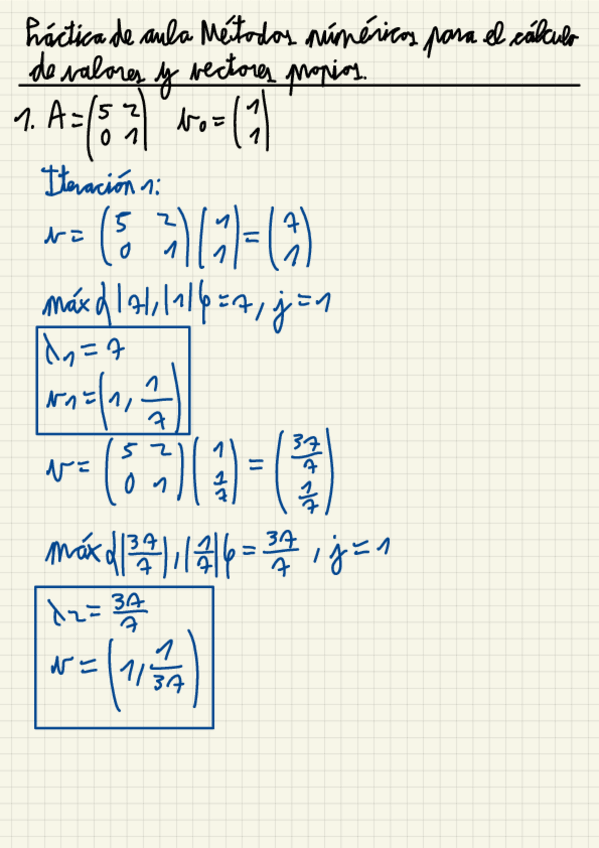 Práctica de aula Métodos numéricos para el cálculo
de valores y vectores propios.
1. A = (5 2; 0 1) v₀ = (1; 1)
Iteración 1:
v = (5 2; 0 1)(1; 1) = (7; 1)
máx{|7|, |1|} = 7, j = 1
λ₁ = 7
v₁ = (1, 1/7)
v = (5 2; 0 1)(1; 1/7) = (37/7; 1/7)
máx{|37/7|, |1/7|} = 37/7, j = 1
λ₂ = 37/7
v = (1, 1/37)